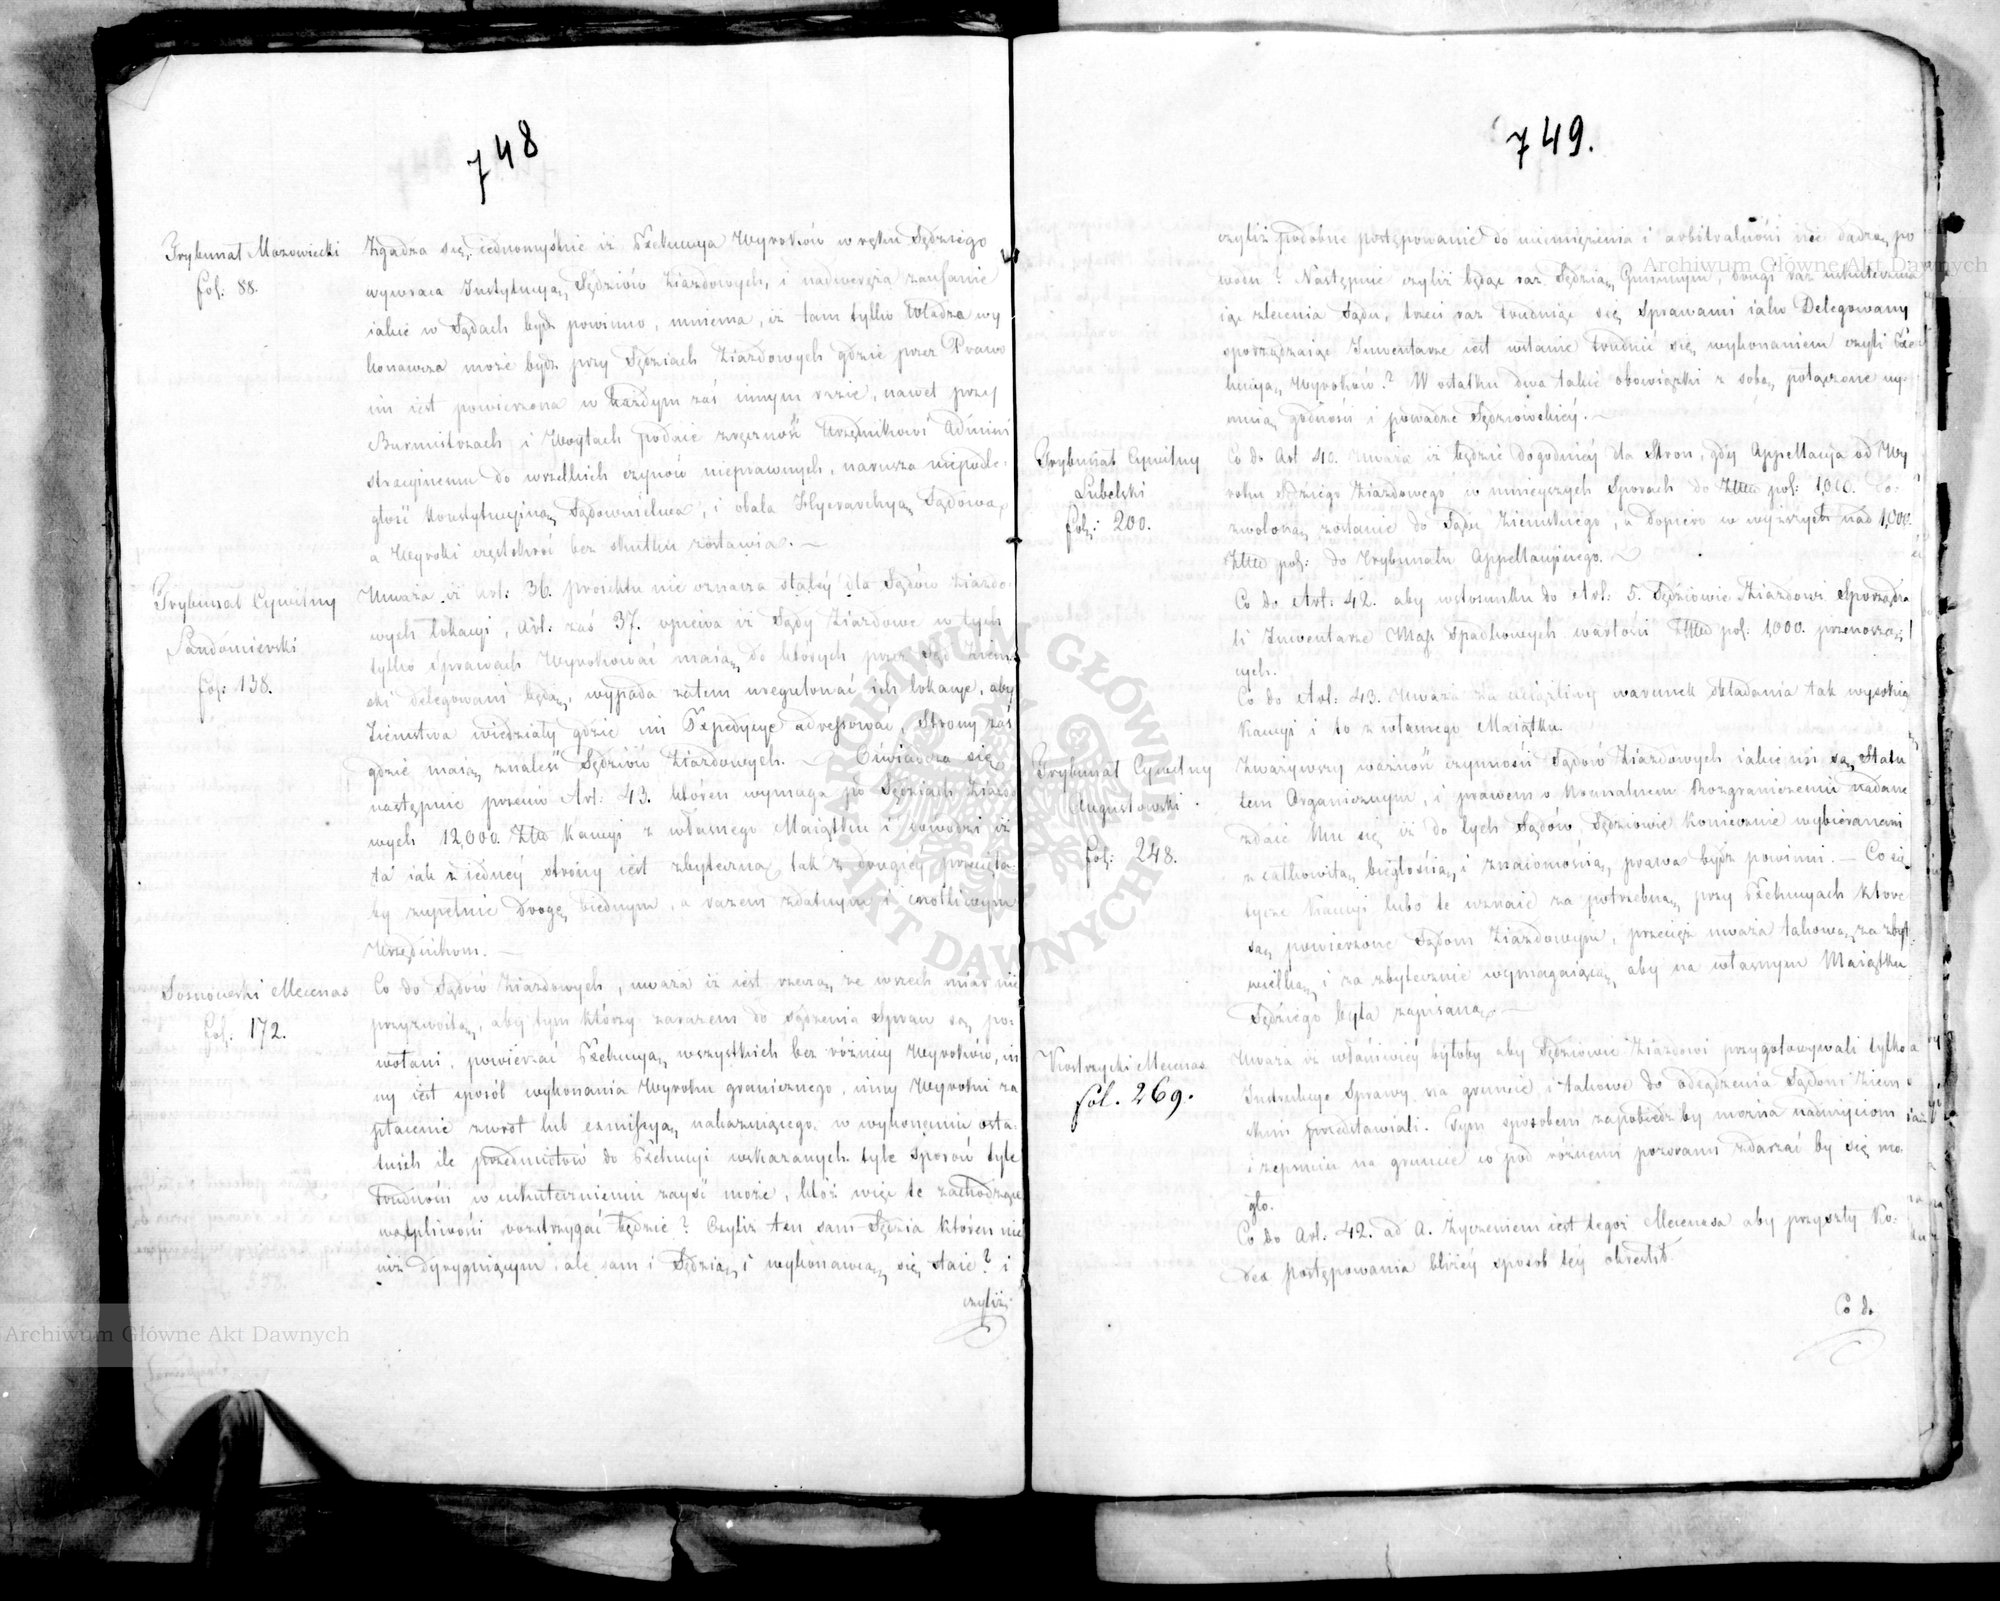 748
Trybunał Mazowiecki
fol: 88.
Zgadza się iednomyślnie iż Exekucya Wyroków w ręku Sędziego
wywraca Instytucyą Sędziów Ziazdowych, i nadweręża zaufanie
iakie w Sądach bydź powinno, mniema, iż tam tylko Władza wy
konawcza może bydź przy Sędziach Ziazdowych gdzie przez Prawo
im iest powierzona w każdym zaś innym razie, nawet przy
Burmistrzach i Woytach podaie zręczność Urzędnikowi Admini
stracyinemu do wszelkich czynów nieprawnych, narusza niepodle-
głość Konstytucyiną Sądownictwa, i obala Hyerarchyą Sądową,
a Wyroki częstokroć bez skutku zostawia. —
Trybunał Cywilny
Sandomierski
fol: 138.
Uważa iż Art: 36. proiektu nie oznacza stałey dla Sądów Ziazdo-
wych lokacyi, Art: zaś 37. opiewa iż Sądy Ziazdowe w tych
tylko sprawach Wyrokować maią do których przez Sąd Ziem
ski delegowani będą, wypada zatem uregulować ich lokacye, aby
Ziemstwa wiedziały gdzie im Expedycye adressować, Strony zaś
gdzie maią znaleść Sędziów Ziazdowych. — Oświadcza się
następnie przeciw Art: 43. któren wymaga po Sędziach Ziazdo
wych 12,000. Złtt Kaucyi z własnego Maiątku i dowodzi iż
ta iak z iedney strony iest zbyteczną tak z drugiey przecięła-
by zupełnie drogę biednym, a razem zdatnym i cnotliwym
Urzędnikom. —
Sosnowski Mecenas
fol: 172.
Co do Sądów Ziazdowych, uważa iż iest rzeczą ze wszech miar nie
przyzwoitą, aby tym którzy zarazem do sądzenia Spraw są po-
wołani, powierzać Exekucyą wszystkich bez różnicy Wyroków, in
ny iest sposób wykonania Wyroku granicznego, inny Wyroku za
płacenie zwrot lub exmissyą nakazuiącego, w wykonaniu osta-
tnich ile przedmiotów do Exekucyi wskazanych tyle sporów tyle
trudności w uskutecznieniu zayść może, któż więc te zachodzące
wątpliwości rozstrzygać będzie? Czyliż ten sam Sędzia któren nie
iuż dyryguiącym, ale sam i Sędzią i wykonawcą się staie? i
czyliż
749.
czyliż podobne postępowanie do uciemiężenia i arbitralności nie dadzą po
wodu? Następnie czyliż będąc raz Sędzią Gminnym, drugi raz uskutecznia
iąc zlecenia Sądu, trzeci raz trudniąc się Sprawami iako Delegowany
sporządzaiąc Inwentarze iest wstanie trudnić się wykonaniem czyli Exe
kucyą Wyroków? W ostatku dwa takie obowiązki z sobą połączone uy-
mią godności i powadze Sędziowskiey. —
Trybunał Cywilny
Lubelski
fol: 200.
Co do Art 40. Uważa iż będzie dogodniey dla Stron, gdy Appellacya od Wy
roku Sędziego Ziazdowego w mnieyszych Sporach do Złtt pol: 1,000. do-
zwoloną zostanie do Sądu Ziemskiego, a dopiero w wyższych nad 1,000.
Złtt pol: do Trybunału Appellacyinego. —
Co do Art: 42. aby wstosunku do Art: 5. Sędziowie Ziazdowi sporządza
li Inwentarze Mass Spadkowych wartości Złtt pol: 1,000. przenoszą-
cych.
Co do Art: 43. Uważa za uciążliwy warunek składania tak wysokiey
Kaucyi i to z własnego Maiątku.
Trybunał Cywilny
Augustowski.
fol: 248.
Zważywszy ważność czynności Sądów Ziazdowych iakie im są Statu
tem Organicznym, i prawem o Rozgraniczeniu nadane
zdaie Mu się iż do tych Sądów Sędziowie koniecznie wybieranemi
z całkowitą biegłością i znaiomością prawa bydź powinni. — Co się
tycze Kaucyi lubo te uznaie za potrzebną przy Exekucyach które
są powierzone Sądom Ziazdowym, przecież uważa takową za zbyt
wielką, i za zbytecznie wymagaiącą aby na własnym Maiątku
Sędziego była zapisaną. —
Kostrzycki Mecenas
fol. 269.
Uważa iż właściwiey byłoby aby Sędziowie Ziazdowi przygotowywali tylko
Instrukcye Sprawy na gruncie, i takowe do osądzenia Sądom Ziem
skim przedstawiali. Tym sposobem zapobiedz by można nadużyciom
i zepsuciu na gruncie co pod różnemi pozorami zdarzać by się mo
gło.
Co do Art: 42. ad A. Życzeniem iest tegoż Mecenasa aby przyszły Ko-
dex Postępowania bliżey sposób tey określił.
Co do
Archiwum Główne Akt Dawnych
Archiwum Główne Akt Dawnych
ARCHIWUM GŁÓWNE AKT DAWNYCH